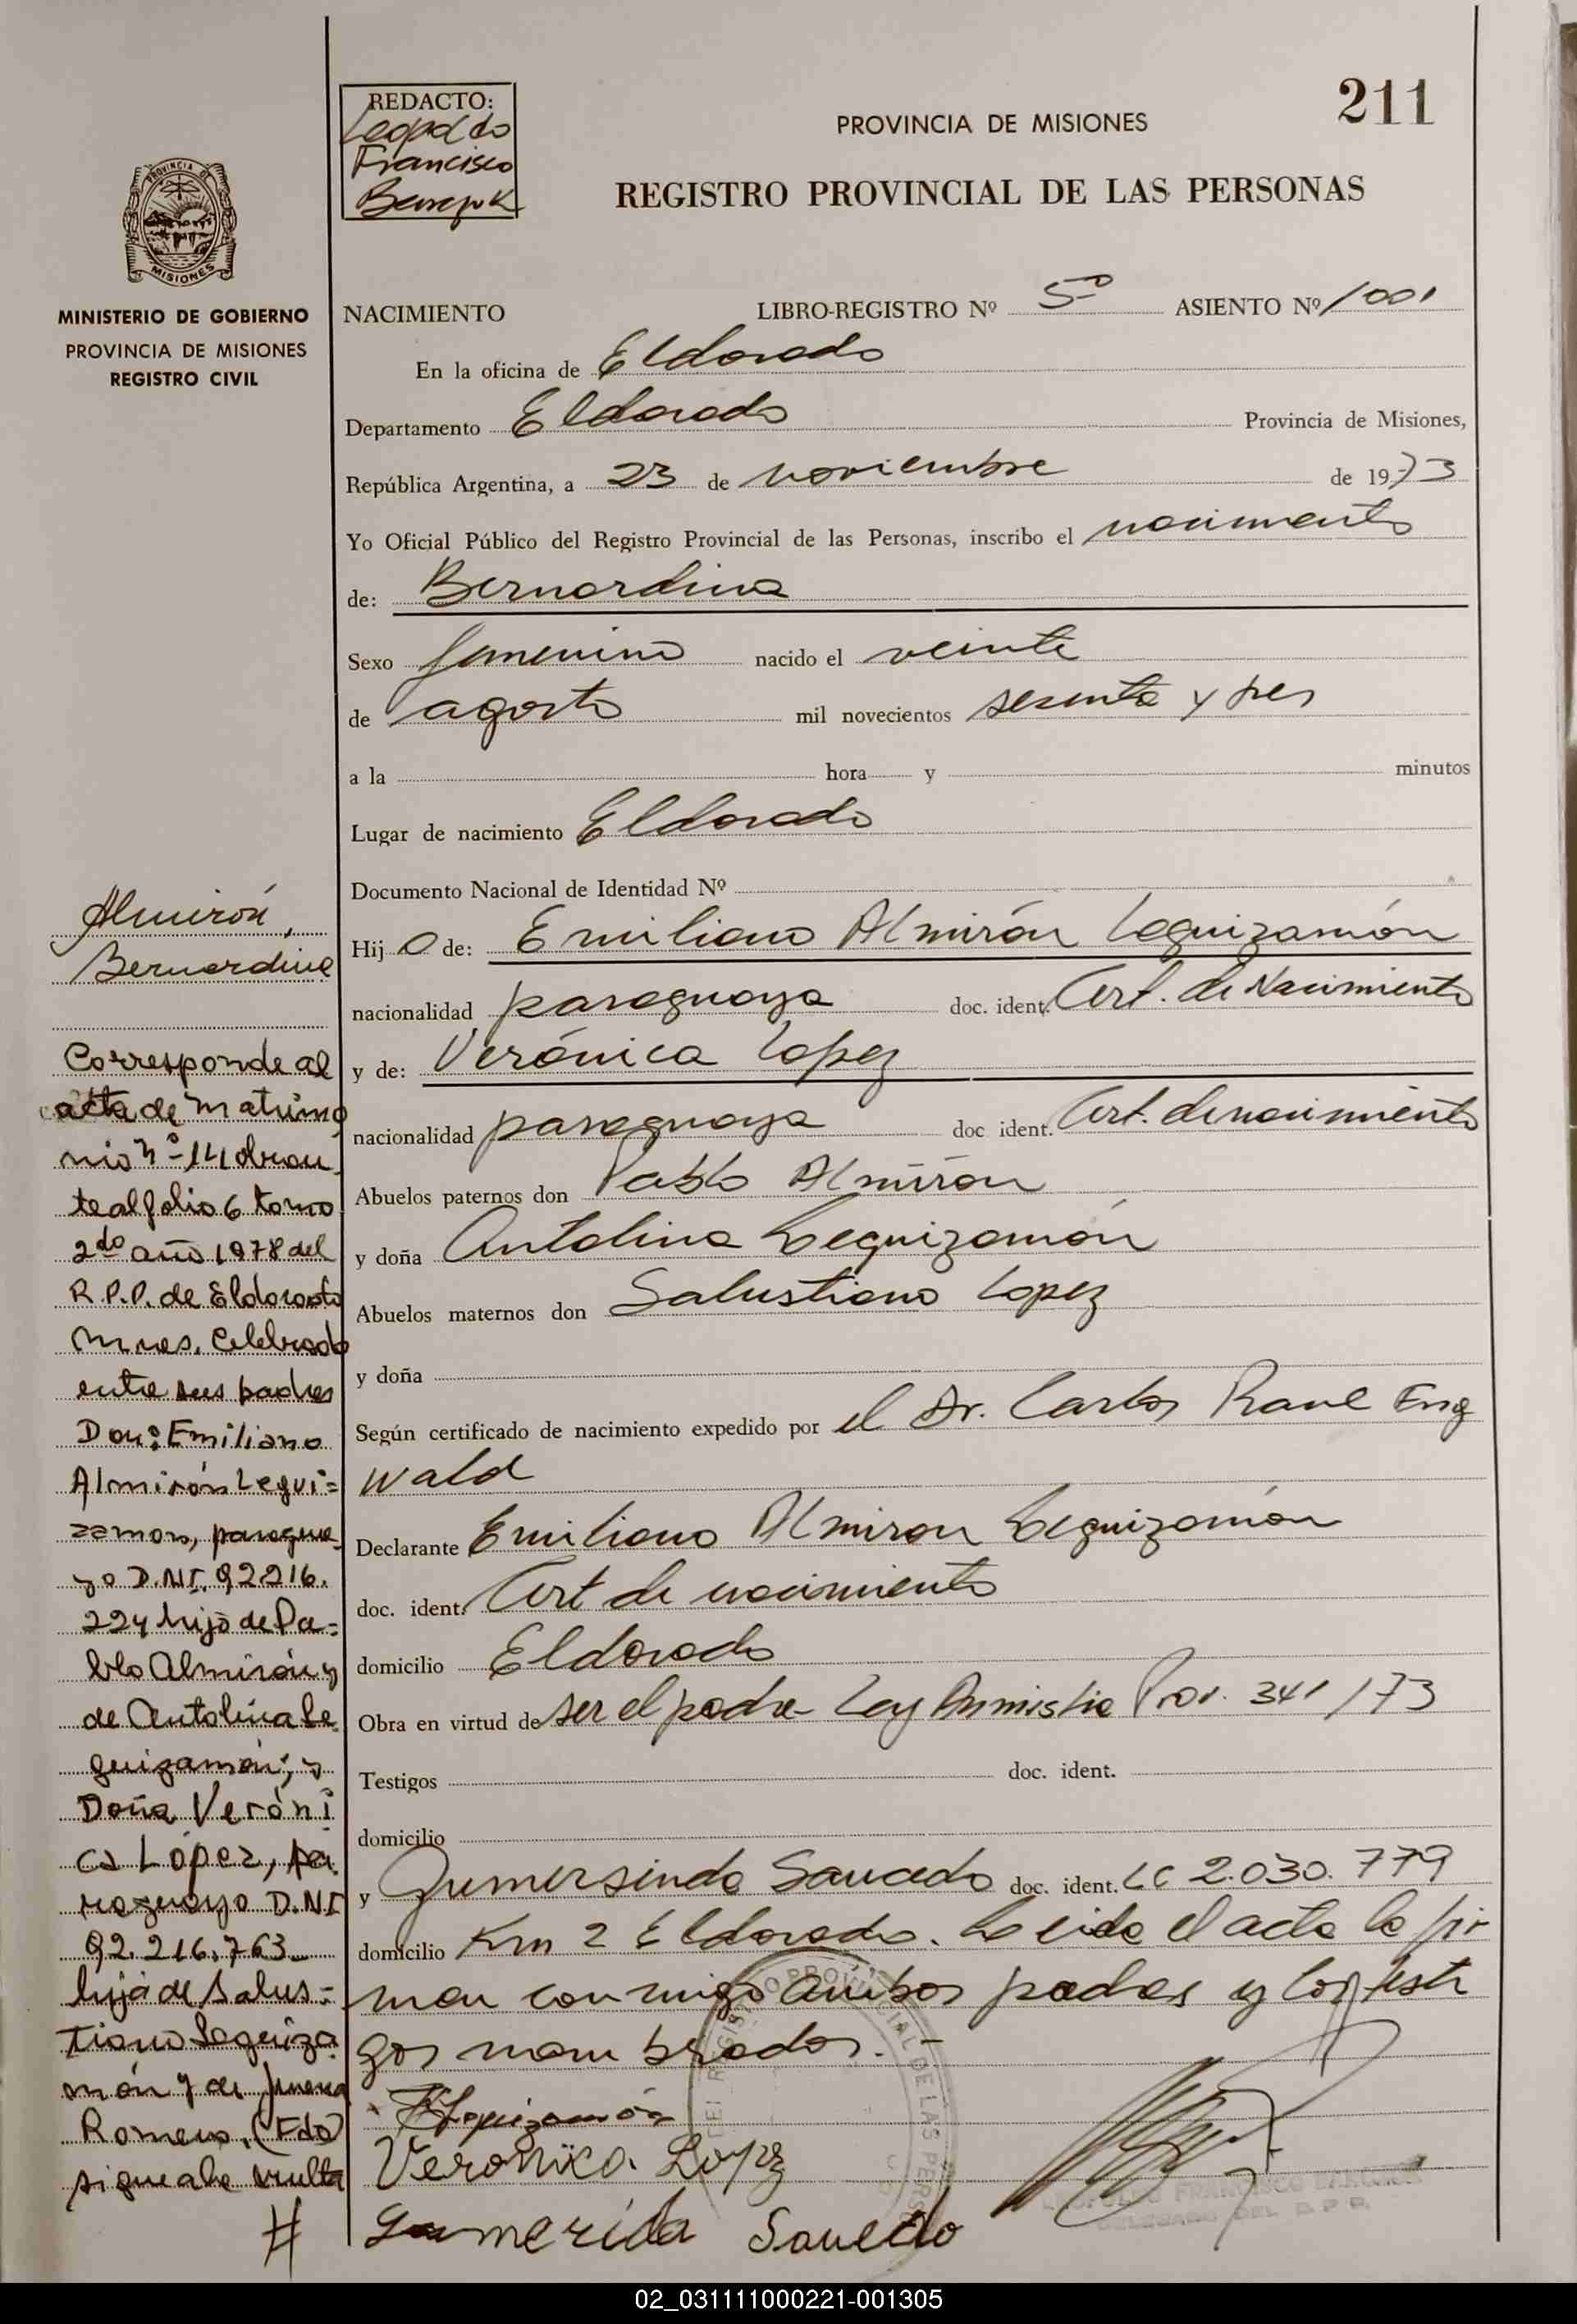 211
REDACTO:
Leopoldo
Francisco
PROVINCIA DE MISIONES
REGISTRO PROVINCIAL DE LAS PERSONAS
PROVINCIA DE
MISIONES
MINISTERIO DE GOBIERNO
PROVINCIA DE MISIONES
REGISTRO CIVIL
NACIMIENTO LIBRO-REGISTRO Nº 5º ASIENTO Nº 1001
En la oficina de Eldorado
Departamento Eldorado Provincia de Misiones,
República Argentina, a 23 de noviembre de 1973
Yo Oficial Público del Registro Provincial de las Personas, inscribo el nacimiento
de: Bernardina
Sexo femenino nacido el veinte
de agosto mil novecientos sesenta y tres
a la hora y minutos
Lugar de nacimiento Eldorado
Documento Nacional de Identidad Nº
Hija de: Emiliano Almirón Leguizamón
nacionalidad paraguaya doc. ident. Cert. de Nacimiento
y de: Verónica Lopez
nacionalidad paraguaya doc ident. Cert. de nacimiento
Abuelos paternos don Pablo Almirón
y doña Antolina Leguizamón
Abuelos maternos don Salustiano Lopez
y doña
Según certificado de nacimiento expedido por el Dr. Carlos Raul Eng
wald
Declarante Emiliano Almiron Leguizamón
doc. ident. Cert de nacimiento
domicilio Eldorado
Obra en virtud de ser el padre - Ley Amnistia Prov. 341/73
Testigos doc. ident.
domicilio
y Gumersindo Saucedo doc. ident. LC 2.030.779
domicilio Km 2 Eldorado. Leida el acta la fir
man conmigo ambos padres y los testi
gos nombrados. -
Leguizamón
Veronica Lopez
Saucedo
REGISTRO PROVINCIAL DE LAS PERSONAS
LEOPOLDO FRANCISCO
DELEGADO DEL R.P.P.
Almirón,
Bernardina
Corresponde al
acta de matrimo
nio nº 14 obran
te al folio 6 tomo
2do año 1978 del
R.P.P. de Eldorado
Mnes. Celebrado
entre sus padres
Don: Emiliano
Almirón Legui=
zamon, paragua
yo D.N.I. 92.216.
224 hijo de Pa=
blo Almirón y
de Antolina Le
guizamón; y
Doña Veróni
ca López, pa
raguaya D.N.I
92.216.763
hija de Salus=
tiano Leguiza
món y de
Romero. (Fdo)
sigue a la vuelta
#
02_031111000221-001305